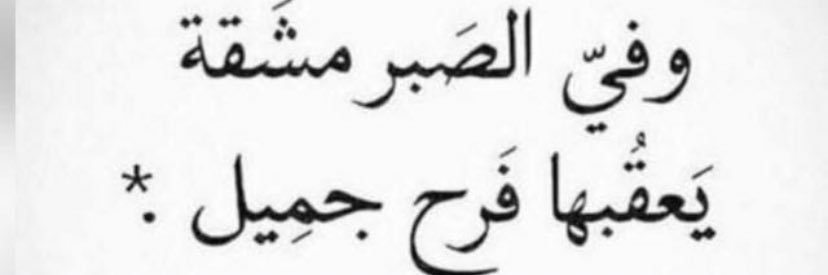 وفيّ الصَبر مشَقة
يَعقُبها فَرح جمِيل .*